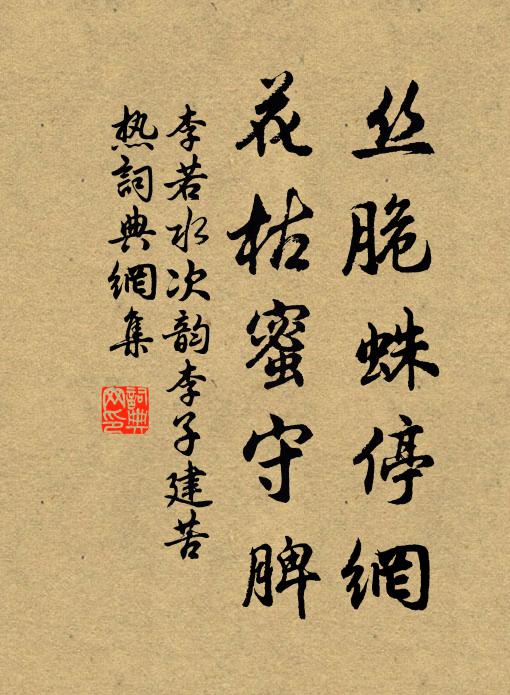 丝脆蛛停網
花枯蜜守脾
李若水次韵李子建苦
热詞典網集
詞典
网印